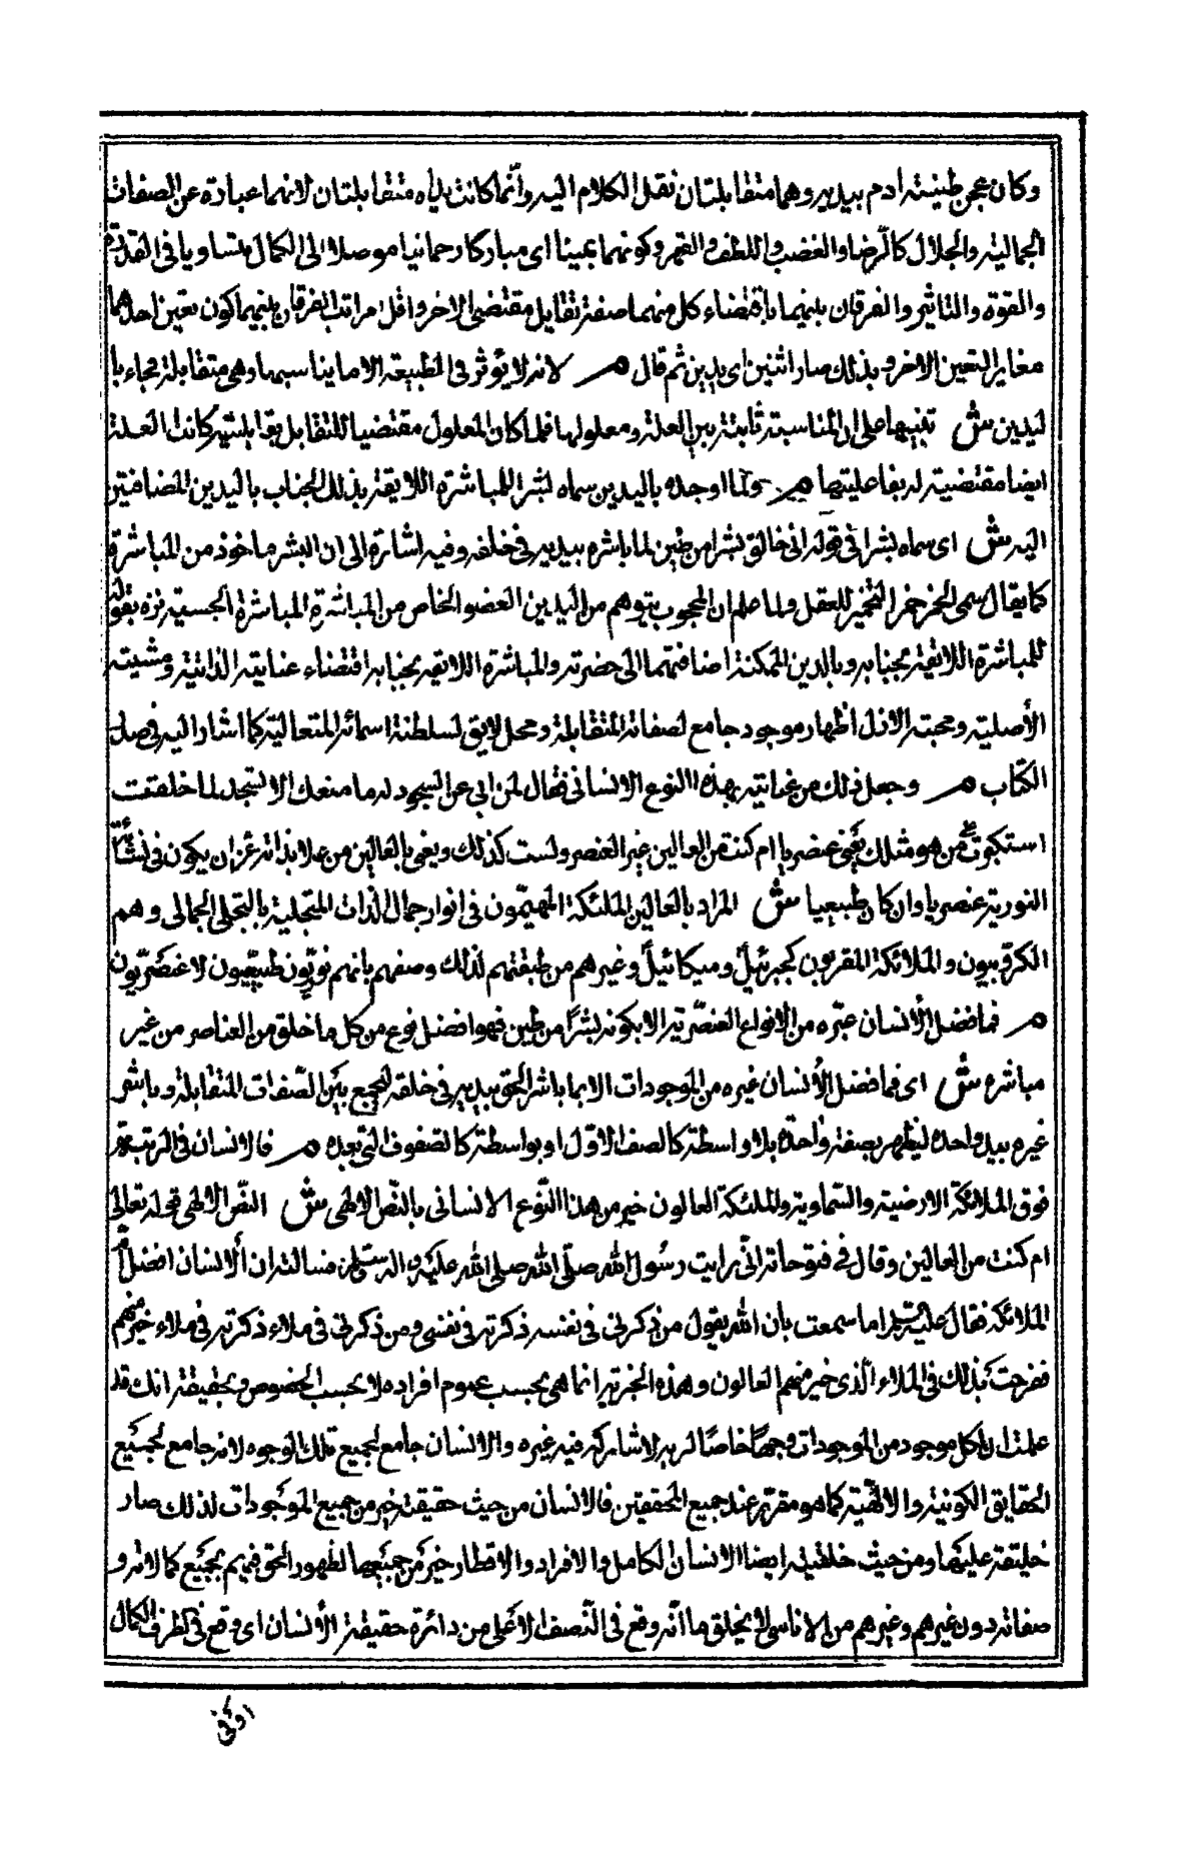 وكان عجن طينته ادم بيديه وهما متقابلتان نقل الكلام اليه وانما كانت يداه متقابلتان لانهما عبارة عن الصفات
الجمالية والجلال كالرضا والغضب واللطف والقهر وكونهما يمينا اى مباركا رحمانيا موصلا الى الكمال متساويا فى القدرة
والقوة والتاثير والفرقان بينهما باقتضاء كل منهما صفة تقابل مقتضى الاخر واقل مراتب الفرقان بينهما كون تعين احدهما
مغاير التعين الاخر وبذلك صار اثنين اى يدين ثم قال م لانه لا يؤثر فى الطبيعة الا ما يناسبها وهى متقابلة فجاء با
ليدين ش تنبيها على ان المناسبة ثابتة بين العلة ومعلولها فلما كان المعلول مقتضيا للتقابل بقابليته كانت العلة
ايضا مقتضية له بفاعليتها م ولما اوجده باليدين سماه بشرا للمباشرة اللايقة بذلك الجناب باليدين المضافتين
اليه ش اى سماه بشرا فى قوله انى خالق بشرا من طين لما باشره بيديه فى خلقه وفيه اشارة الى ان البشر ماخوذ من المباشرة
كما يقال سمى الخمر خمرا لتخمير للعقل ولما علم ان المحجوب يتوهم من اليدين العضو الخاص من المباشرة المباشرة الحسية نزه بقوله
للمباشرة اللائقة بجنابه وباليدين الممكنة اضافتهما الى حضرته والمباشرة اللايقه بجنابه اقتضاء عنايته الذاتية ومشيته
الأصلية ومحبته الازل اظهار موجود جامع لصفاته المتقابلة ومحل لايق لسلطنة اسمائه المتعالية كما اشار اليه فى صدر
الكتاب م وجعل ذلك من عنايته بهذا النوع الانسانى فقال لمن ابى عن السجود له ما منعك الا تسجد لما خلقت
استكبرت على من هو مثلك يعنى عنصريا ام كنت من العالين غير العنصر ولست كذلك ويعنى بالعالين من علا بذاته عن ان يكون فى نشأته
النورية عنصريا وان كان طبيعيا ش المراد بالعالين الملئكة المهيمون فى انوار جمال الذات المتجلية بالتجلى الجمالى وهم
الكروبيون والملائكة المقربون كجبرئيل وميكائيل وغيرهم من طبقتهم لذلك وصفهم بانهم نوريون طبيعيون لا عنصريون
م فما فضل الانسان غيره من الانواع العنصرية الا بكونه بشرا من طين فهو افضل نوع من كل ما خلق من العناصر من غير
مباشره ش اى فما فضل الأنسان غيره من الموجودات الا بما باشر الحق بيديه فى خلقه لتجمع بين الصفات المتقابلة وباشر
غيره بيد واحده ليظهر بصفة واحدة بلا واسطة كالصف الاول او بواسطة كالصفوف التى بعده م فالانسان فى الرتبة
فوق الملائكة الارضية والسماوية والملئكة العالون خير من هذا النوع الانسانى بالنص الالهى ش النص الالهى قوله تعالى
ام كنت من العالين وقال فى فتوحاته انى رايت رسول الله صلى الله صلى الله عليه واله وسلم فسالته ان الانسان افضل ام
الملائكة فقال عليه السلم اما سمعت بان الله يقول من ذكرنى فى نفسه ذكرته فى نفسى ومن ذكرنى فى ملاء ذكرته فى ملاء خير منهم
ففرحت بذلك فى الملاء الذى خير منهم العالون وهذه الخيرية انما هى بحسب عموم افراده لا بحسب الخصوص وبحقيقته انك قد
علمت ان لكل موجود من الموجودات وجها خاصا لربه لا شاركه فيه غيره والانسان جامع لجميع تلك الوجوه لانه جامع لجميع
الحقايق الكونية والالهية كما هو مقرر عند جميع المحققين فالانسان من حيث حقيقته خير من جميع الموجودات لذلك صار
خليفة عليها ومن حيث خلقيته ايضا الانسان الكامل والافراد والاقطار خير من جميعها لظهور الحق فيهم بجميع كمالاته و
صفاته دون غيرهم وغيرهم من الاناسى لا يخلق ما انه وقع فى النصف الاعلى من دائرة حقيقة الأنسان اى وقع فى طرف الكمال
اوفى